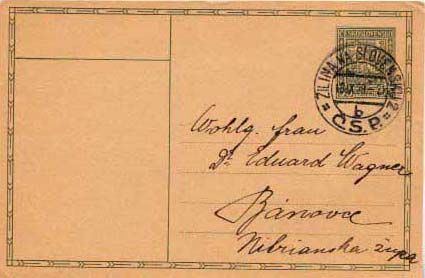 ŽILINA NA SLOVENSKU 2
b
Č.S.P.
Wohlg. Frau
Dr. Eduard Wagner
Bánovce
Nitrianska župa